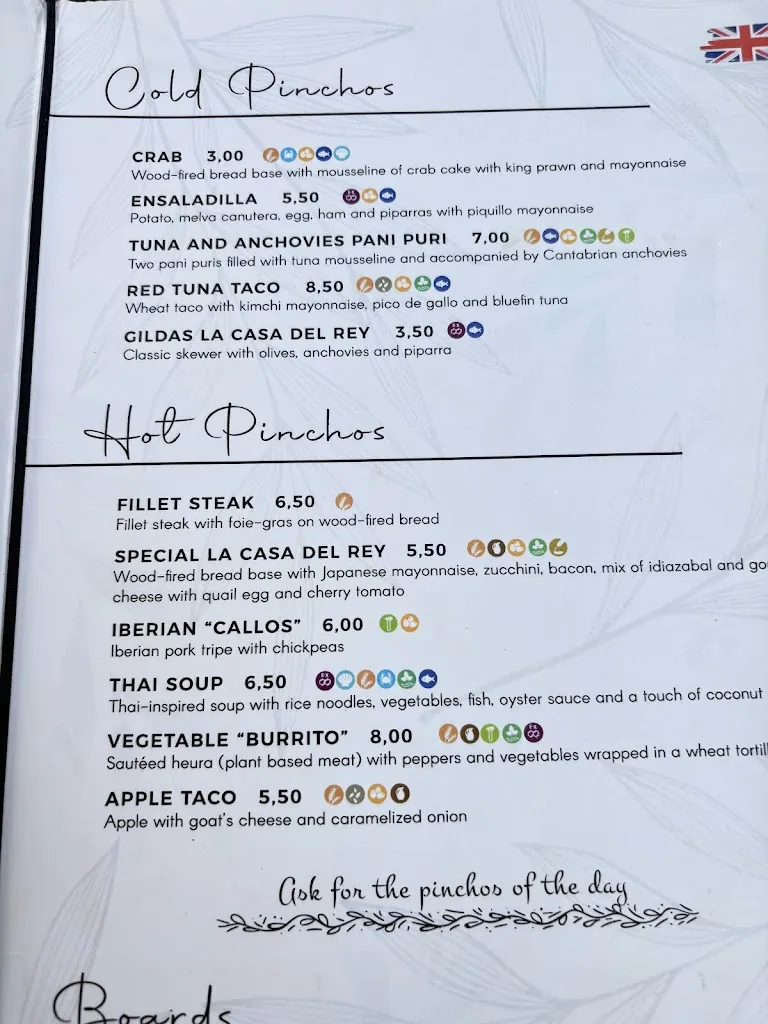 Cold Pinchos
CRAB 3,00
Wood-fired bread base with mousseline of crab cake with king prawn and mayonnaise
ENSALADILLA 5,50
Potato, melva canutera, egg, ham and piparras with piquillo mayonnaise
TUNA AND ANCHOVIES PANI PURI 7,00
Two pani puris filled with tuna mousseline and accompanied by Cantabrian anchovies
RED TUNA TACO 8,50
Wheat taco with kimchi mayonnaise, pico de gallo and bluefin tuna
GILDAS LA CASA DEL REY 3,50
Classic skewer with olives, anchovies and piparra
Hot Pinchos
FILLET STEAK 6,50
Fillet steak with foie-gras on wood-fired bread
SPECIAL LA CASA DEL REY 5,50
Wood-fired bread base with Japanese mayonnaise, zucchini, bacon, mix of idiazabal and
cheese with quail egg and cherry tomato
IBERIAN “CALLOS” 6,00
Iberian pork tripe with chickpeas
THAI SOUP 6,50
Thai-inspired soup with rice noodles, vegetables, fish, oyster sauce and a touch of coconut
VEGETABLE “BURRITO” 8,00
Sautéed heura (plant based meat) with peppers and vegetables wrapped in a wheat
APPLE TACO 5,50
Apple with goat's cheese and caramelized onion
Ask for the pinchos of the day
Boards